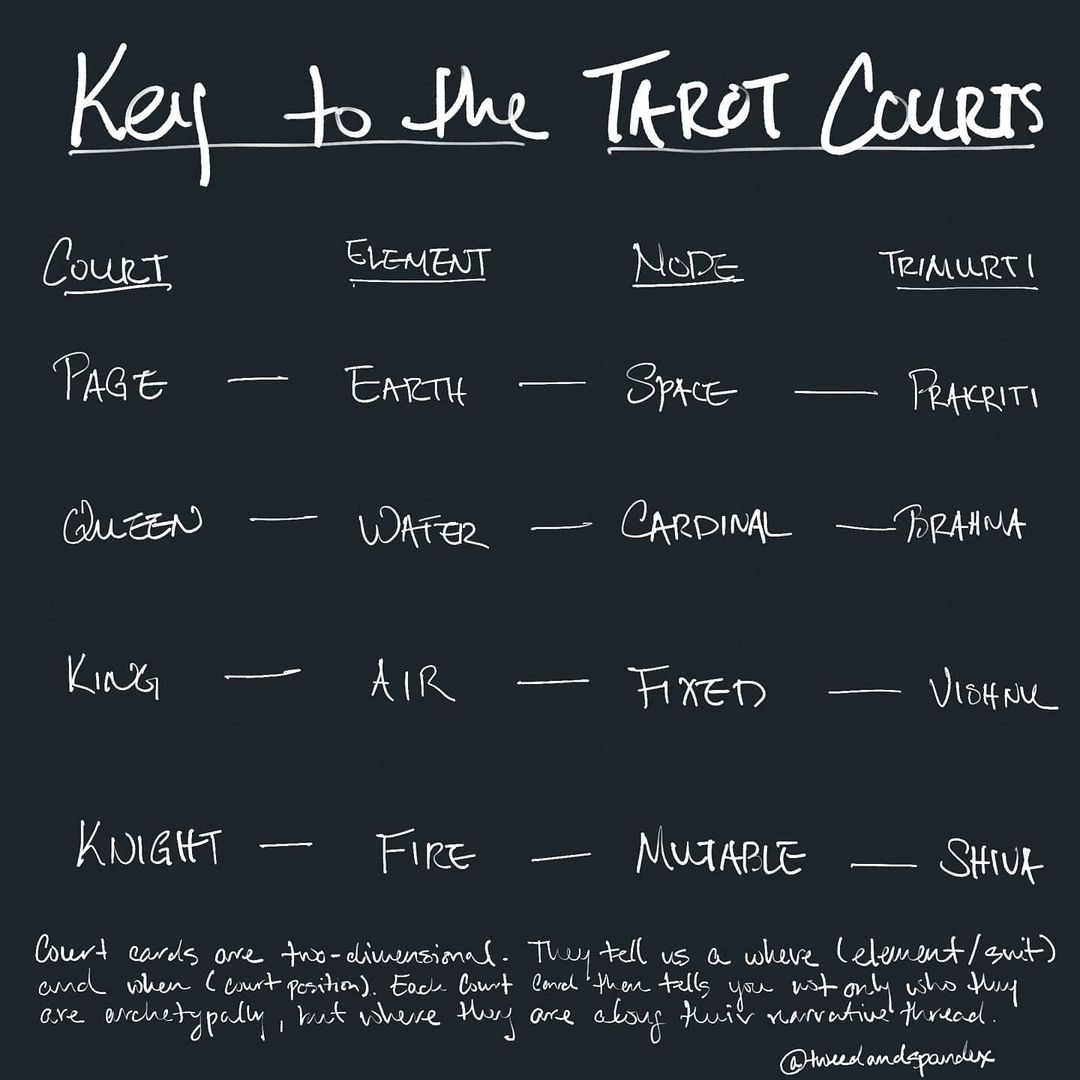 Key to the TAROT COURTS
COURT ELEMENT MODE TRIMURTI
PAGE — EARTH — SPACE — PRAKRITI
QUEEN — WATER — CARDINAL — BRAHMA
KING — AIR — FIXED — VISHNU
KNIGHT — FIRE — MUTABLE — SHIVA
Court cards are two-dimensional. They tell us a where (element/suit)
and when (court position). Each Court Card then tells you not only who they
are archetypally, but where they are along their narrative thread.
@tweedandspandex